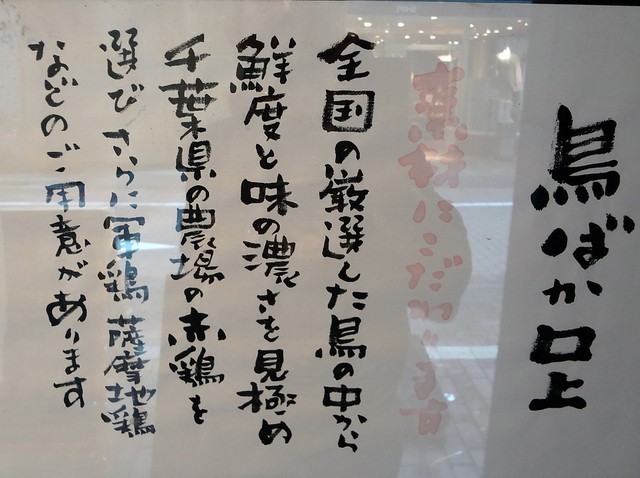 鳥ばか口上
素材にこだわる旨
全国の厳選した鳥の中から
鮮度と味の濃さを見極め
千葉県の農場の赤鶏を
選びさらに軍鶏薩摩地鶏
などのご用意があります